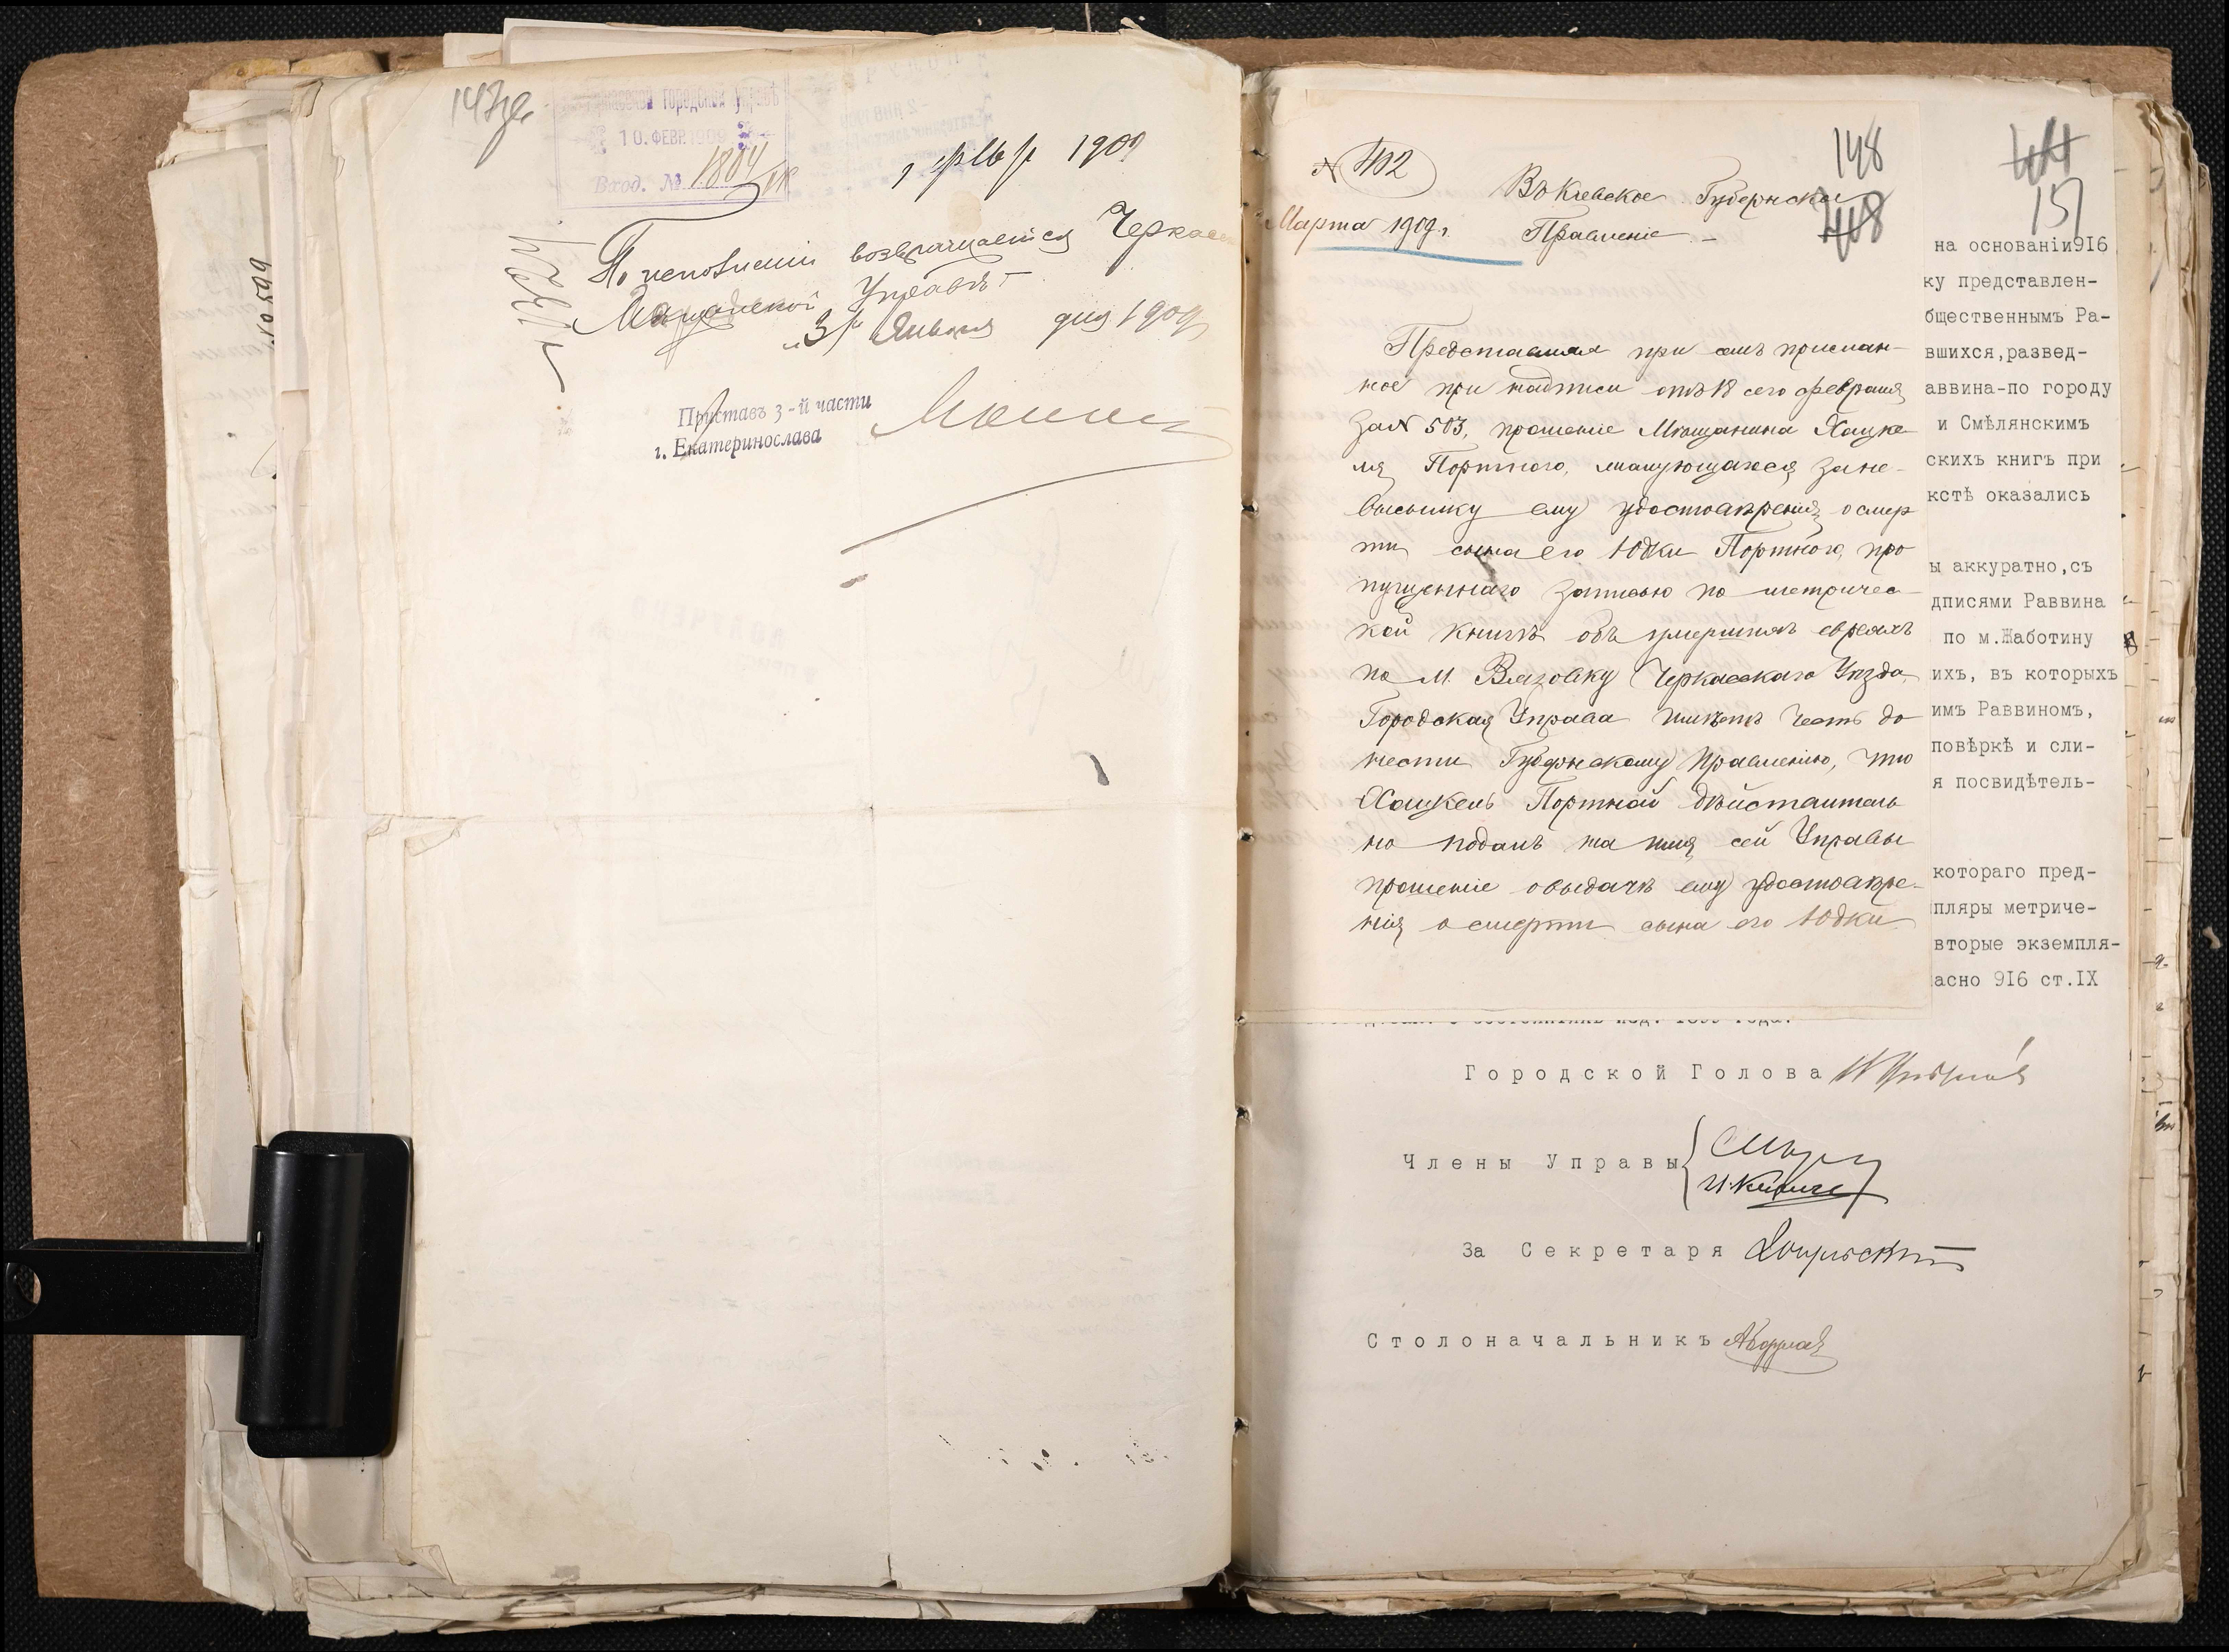 147
10. ФЕВР. 1909
Вход. № 1804
1909
По исполненіи возвращается
Управѣ
31 Января дня 1909
Приставъ 3-й части
г. Екатеринослава
№ 599
148
№ 402
Въ Кіевское Губернское
Марта 1909 г. Правленіе
Представляя при семъ прислан-
ное при надписи отъ 18 сего февраля
за № 503, прошеніе Мѣщанина Хацке
ля Портного, жалующагося за не-
высылку ему удостовѣренія о смер
ти сына его Юдки Портного, про
пущеннаго записью по метричес-
кой книгѣ объ умершихъ евреяхъ
по м. Вязовку Черкасскаго Уѣзда,
Городская Управа имѣетъ честь до
нести Губернскому Правленію, что
Хацкель Портной дѣйствитель
но подалъ на имя сей Управы
прошеніе о выдачѣ ему удостовѣре-
нія о смерти сына его Юдки
151
на основаніи916
ку представлен-
бщественнымъ Ра-
вшихся,развед-
аввина-по городу
и Смѣлянскимъ
скихъ книгъ при
кстѣ оказались
ы аккуратно,съ
дписями Раввина
по м.Жаботину
ихъ, въ которыхъ
имъ Раввиномъ,
повѣркѣ и сли-
я посвидѣтель-
котораго пред-
пляры метриче-
вторые экземпля-
асно 916 ст.IX
Городской Голова
Члены Управы
За Секретаря
Столоначальникъ